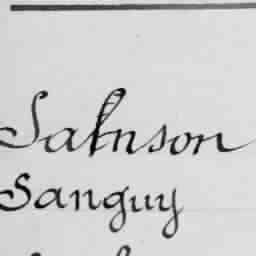 Salnson
Sanguy